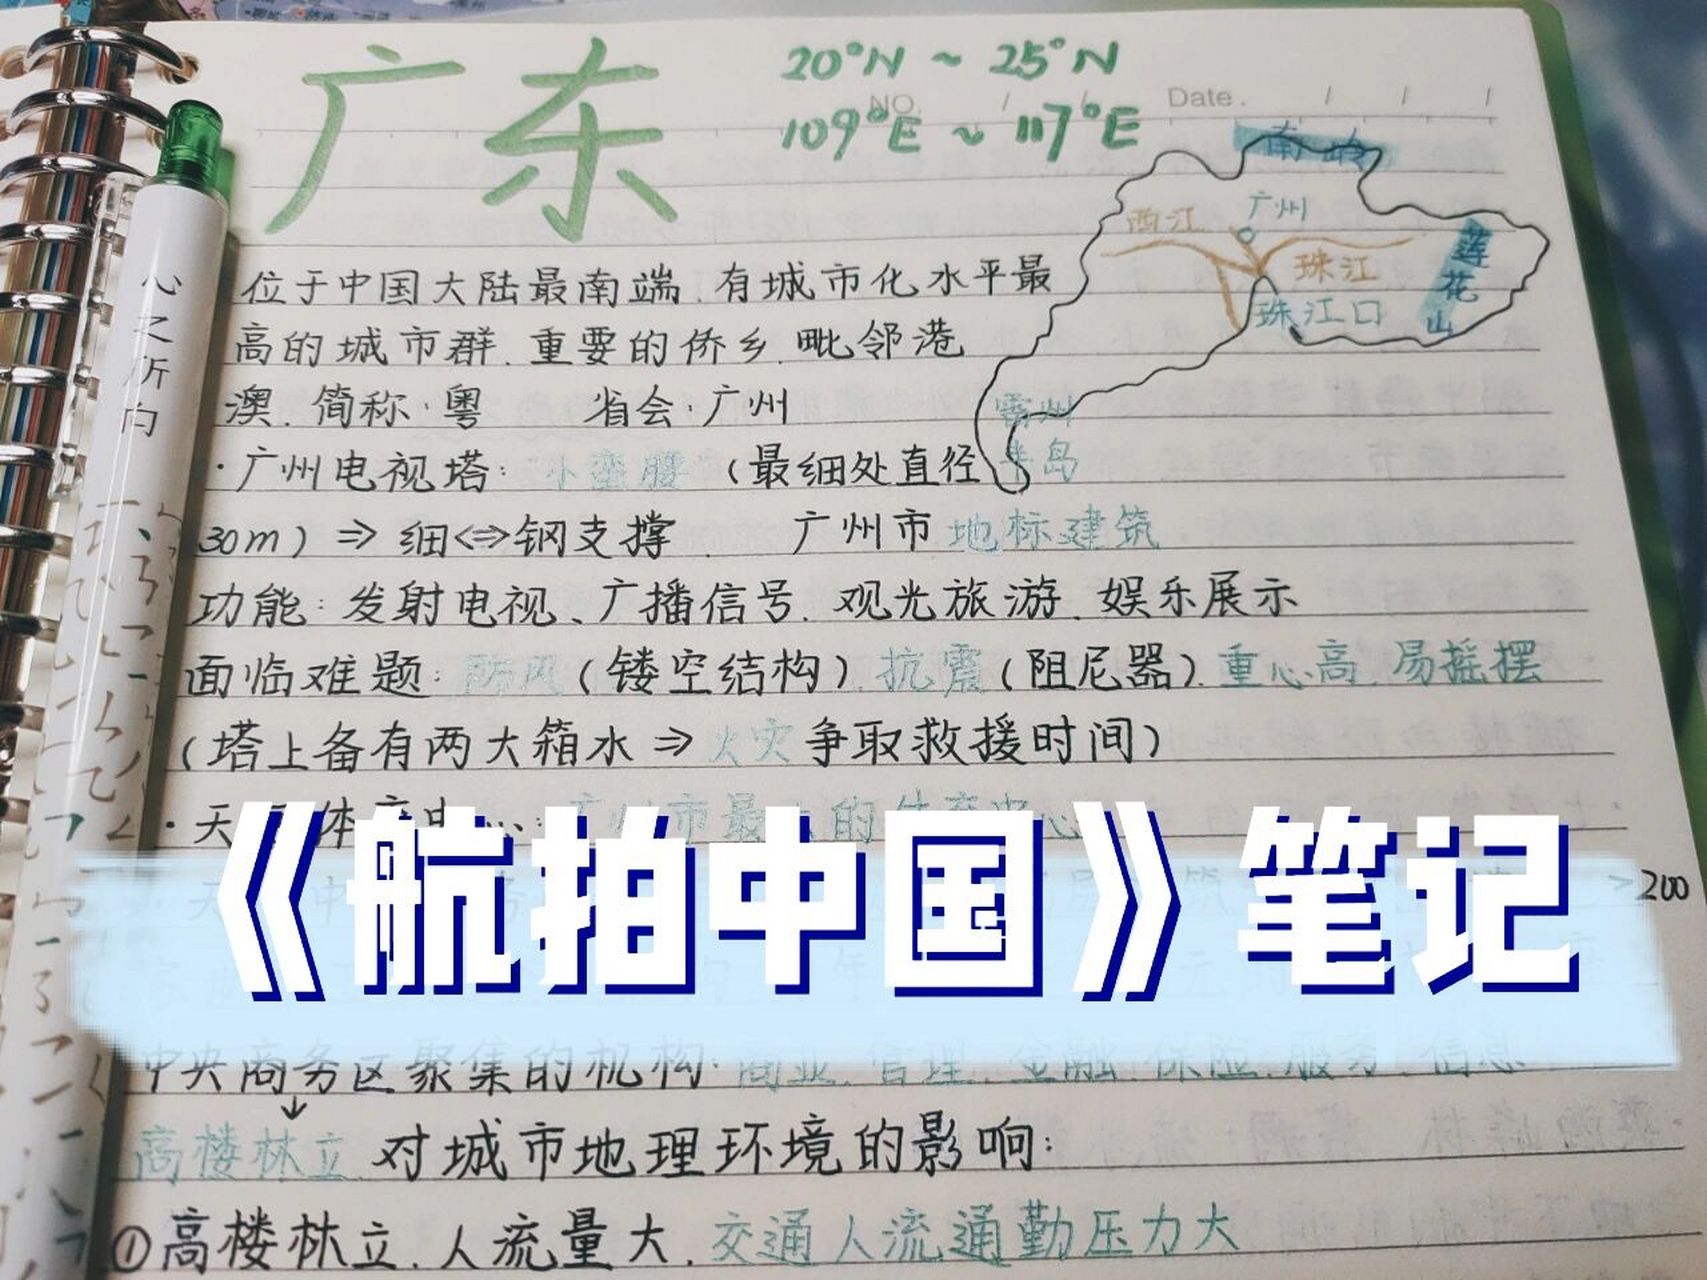 广东
20°N ~ 25°N
109°E ~ 117°E
NO.
Date.
南岭
西江
广州
珠江
珠江口
莲花山
雷州
半岛
心之所向
位于中国大陆最南端、有城市化水平最
高的城市群、重要的侨乡、毗邻港
澳、简称:粤 省会:广州
·广州电视塔:小蛮腰(最细处直径
30m)⇒细<=>钢支撑、广州市地标建筑
功能:发射电视、广播信号、观光旅游、娱乐展示
面临难题:防风(镂空结构)抗震(阻尼器)、重心高、易摇摆
(塔上备有两大箱水⇒火灾争取救援时间)
·天 体育中心:广州市最 的体育中心
《航拍中国》笔记
天 中 务
>200
年
元
中央商务区聚集的机构:商业、管理、金融、保险、服务、信息
↓
高楼林立 对城市地理环境的影响:
①高楼林立、人流量大、交通人流通勤压力大